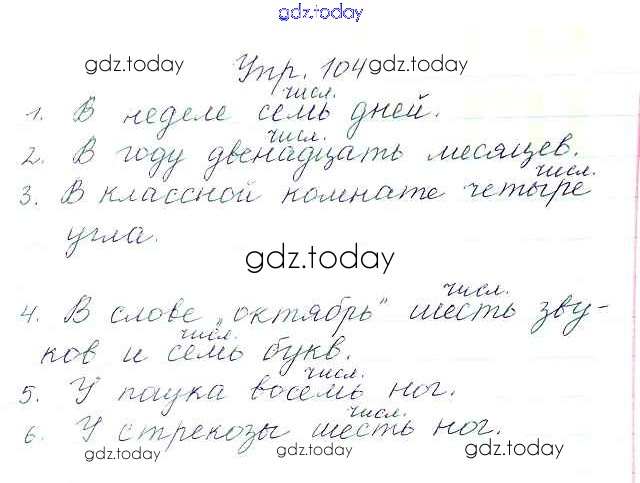 gdz.today
gdz.today Упр. 104 gdz.today
числ.
1. В неделе семь дней.
числ.
2. В году двенадцать месяцев.
числ.
3. В классной комнате четыре
угла.
gdz.today
числ.
4. В слове „октябрь" шесть зву-
числ.
ков и семь букв.
числ.
5. У паука восемь ног.
числ.
6. У стрекозы шесть ног.
gdz.today gdz.today gdz.today